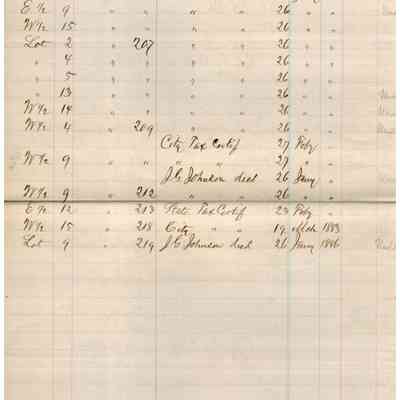 E ½ 9 " " " 26 " "
W ½ 15 " " " 26 " "
Lot 2 " 207 " 26 " "
" 4 " " " 26 " "
" 5 " " " 26 " "
" 13 " " " 26 " "
W ½ 14 " " " 26 " "
W ½ 4 " 209 " 26 " "
City Tax Certif 27 Feby "
W ½ 9 " " " " 27 " "
J. G. Johnson deed 26 Jany "
W ½ 9 " 212 " " 26 " "
E ½ 12 " 213 State Tax Certif 23 Feby "
W ½ 15 " 218 City " " 19 Mch 1883
Lot 9 " 219 J. G. Johnson deed 26 Jany 1886